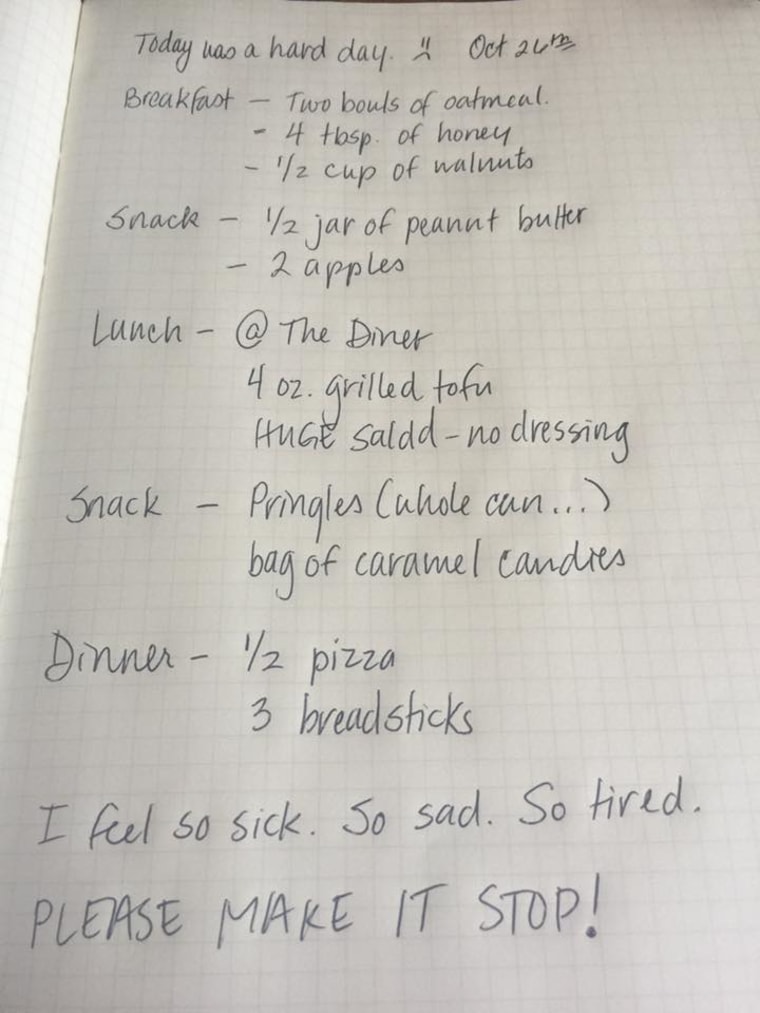 Today was a hard day. :( Oct 26th
Breakfast - Two bowls of oatmeal.
- 4 tbsp. of honey
- 1/2 cup of walnuts
Snack - 1/2 jar of peanut butter
- 2 apples
Lunch - @ The Diner
4 oz. grilled tofu
HUGE saldd - no dressing
Snack - Pringles (whole can...)
bag of caramel candies
Dinner - 1/2 pizza
3 breadsticks
I feel so sick. So sad. So tired.
PLEASE MAKE IT STOP!